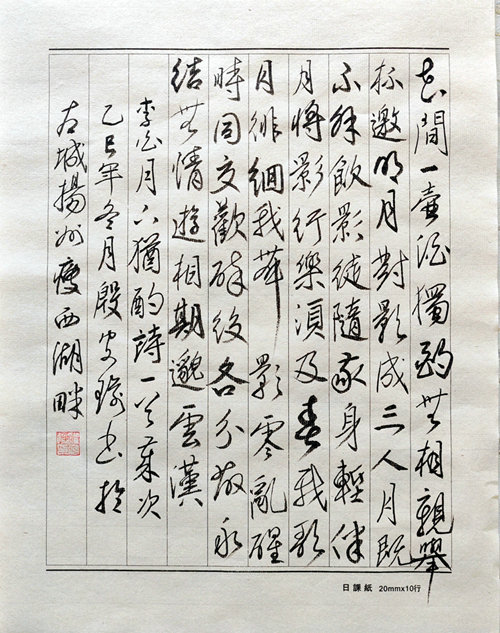 花間一壺酒獨酌無相親舉
杯邀明月對影成三人月既
不解飲影徒隨我身暫伴
月將影行樂須及春我歌
月徘徊我舞影零亂醒
時同交歡醉後各分散永
結無情遊相期邈雲漢
李白月下獨酌詩一首歲次
乙巳年冬月殷書於
古城揚州瘦西湖畔
日課紙 20mmx10行